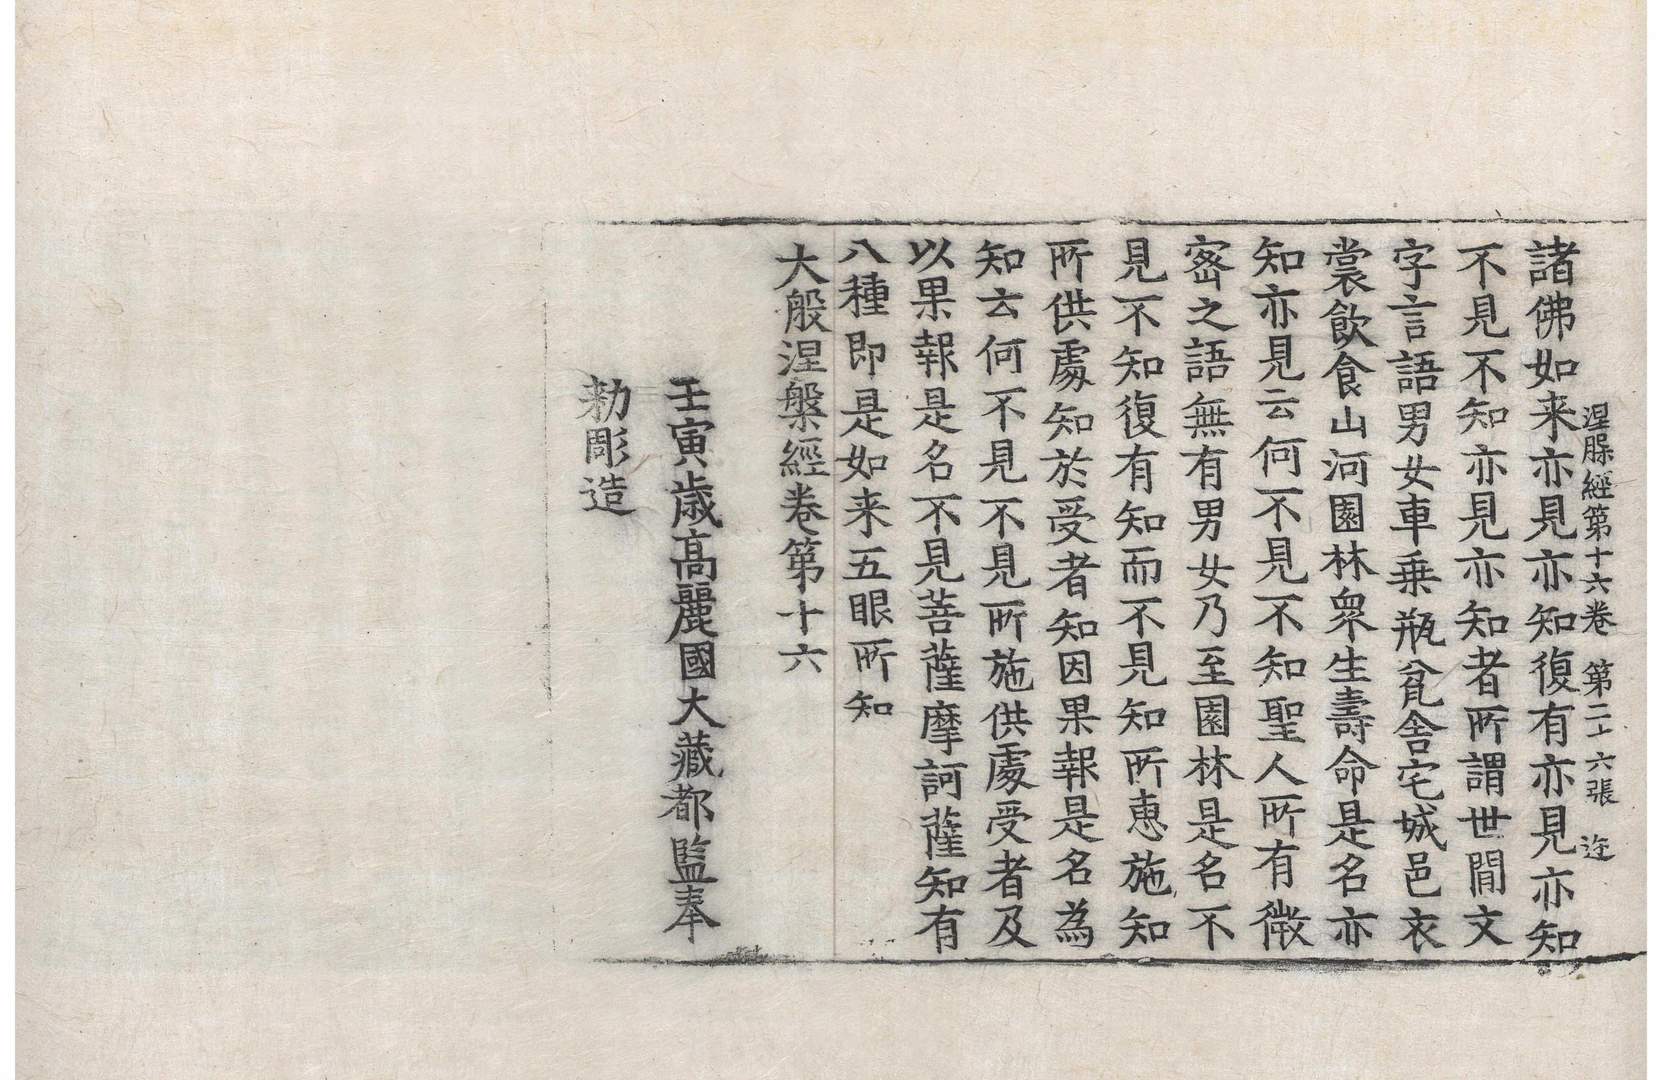 涅槃經第十六卷 第二十六張 迬
諸佛如来亦見亦知復有亦見亦知
不見不知亦見亦知者所謂世閒文
字言語男女車乗瓶瓫舎宅城邑衣
裳飲食山河園林衆生壽命是名亦
知亦見云何不見不知聖人所有微
宻之語無有男女乃至園林是名不
見不知復有知而不見知所惠施知
所供處知於受者知因果報是名為
知云何不見不見所施供處受者及
以果報是名不見菩薩摩訶薩知有
八種即是如来五眼所知
大般涅槃經卷第十六
壬寅歳高麗國大藏都監奉
勑彫造